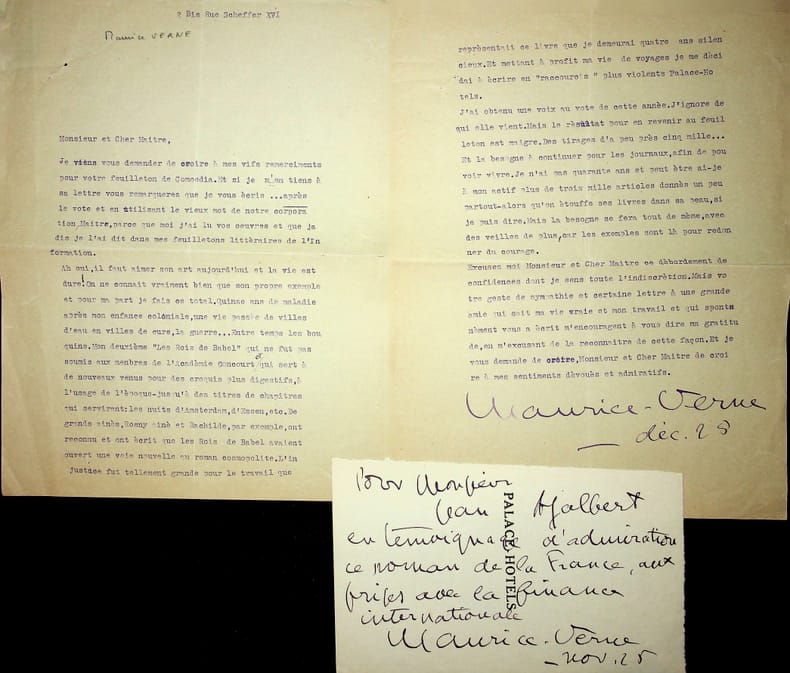 2 Bis Rue Scheffer XVI
Maurice VERNE
Monsieur et Cher Maitre,
Je viens vous demander de croire à mes vifs remerciments
pour votre feuilleton de Comoedia. Et si je m'en tiens à
sa lettre vous remarquerez que je vous écris ...après
le vote et en utilisant le vieux mot de notre corpora
tion,Maitre,parce que moi j'ai lu vos oeuvres et que ja
dis je l'ai dit dans mes feuilletons littéraires de l'In
formation.
Ah oui,il faut aimer son art aujourd'hui et la vie est
dure!On ne connait vraiment bien que son propre exemple
et pour ma part je fais ce total. Quinze ans de maladie
après mon enfance coloniale,une vie passée de villes
d'eau en villes de cure,la guerre...Entre temps les bou
quins.Mon deuxième "Les Rois de Babel" qui ne fut pas
soumis aux menbres de l'Acadèmie Goncourt et qui sert à
de nouveaux venus pour des croquis plus digestifs,à
l'usage de l'époque-jusqu'à des titres de chapitres
qui servirent:les nuits d'Amsterdam,d'Essen,etc.De
grands ainès,Rosny ainè et Rachilde,par exemple,ont
reconnu et ont écrit que les Rois de Babel avaient
ouvert une voie nouvelle au roman cosmopolite.L'in
justice fut tellement grande pour le travail que
représentait ce livre que je demeurai quatre ans silen
cieux.Et mettant à profit ma vie de voyages je me déci
dai à écrire en "raccourcis " plus violents Palace-Ho
tels.
J'ai obtenu une voix au vote de cette année.J'ignore de
qui elle vient.Mais le résultat pour en revenir au feuil
leton est maigre.Des tirages d'a peu près cinq mille...
Et la besogne à continuer pour les journaux,afin de pou
voir vivre.Je n'ai pas quarante ans et peut être ai-je
à mon actif plus de trois mille articles donnés un peu
partout-alors qu'on étouffe ses livres dans sa peau,si
je puis dire.Mais la besogne se fera tout de même,avec
des veilles de plus,car les exemples sont là pour redon
ner du courage.
Excusez moi Monsieur et Cher Maitre ce débordement de
confidences dont je sens toute l'indiscrètion.Mais vo
tre geste de sympathie et certaine lettre à une grande
amie qui sait ma vie vraie et mon travail et qui sponta
nément vous a écrit m'encouragent à vous dire ma gratitu
de,en m'excusant de la reconnaitre de cette façon.Et je
vous demande de croire,Monsieur et Cher Maitre de croi
re à mes sentiments dévoués et admiratifs.
Maurice-Verne
déc. 25
Pour Monsieur
Jean Ajalbert
en témoignage d'admiration
ce roman de la France, aux
prises avec la finance
internationale
Maurice-Verne
nov. 25
PALACE-HOTELS